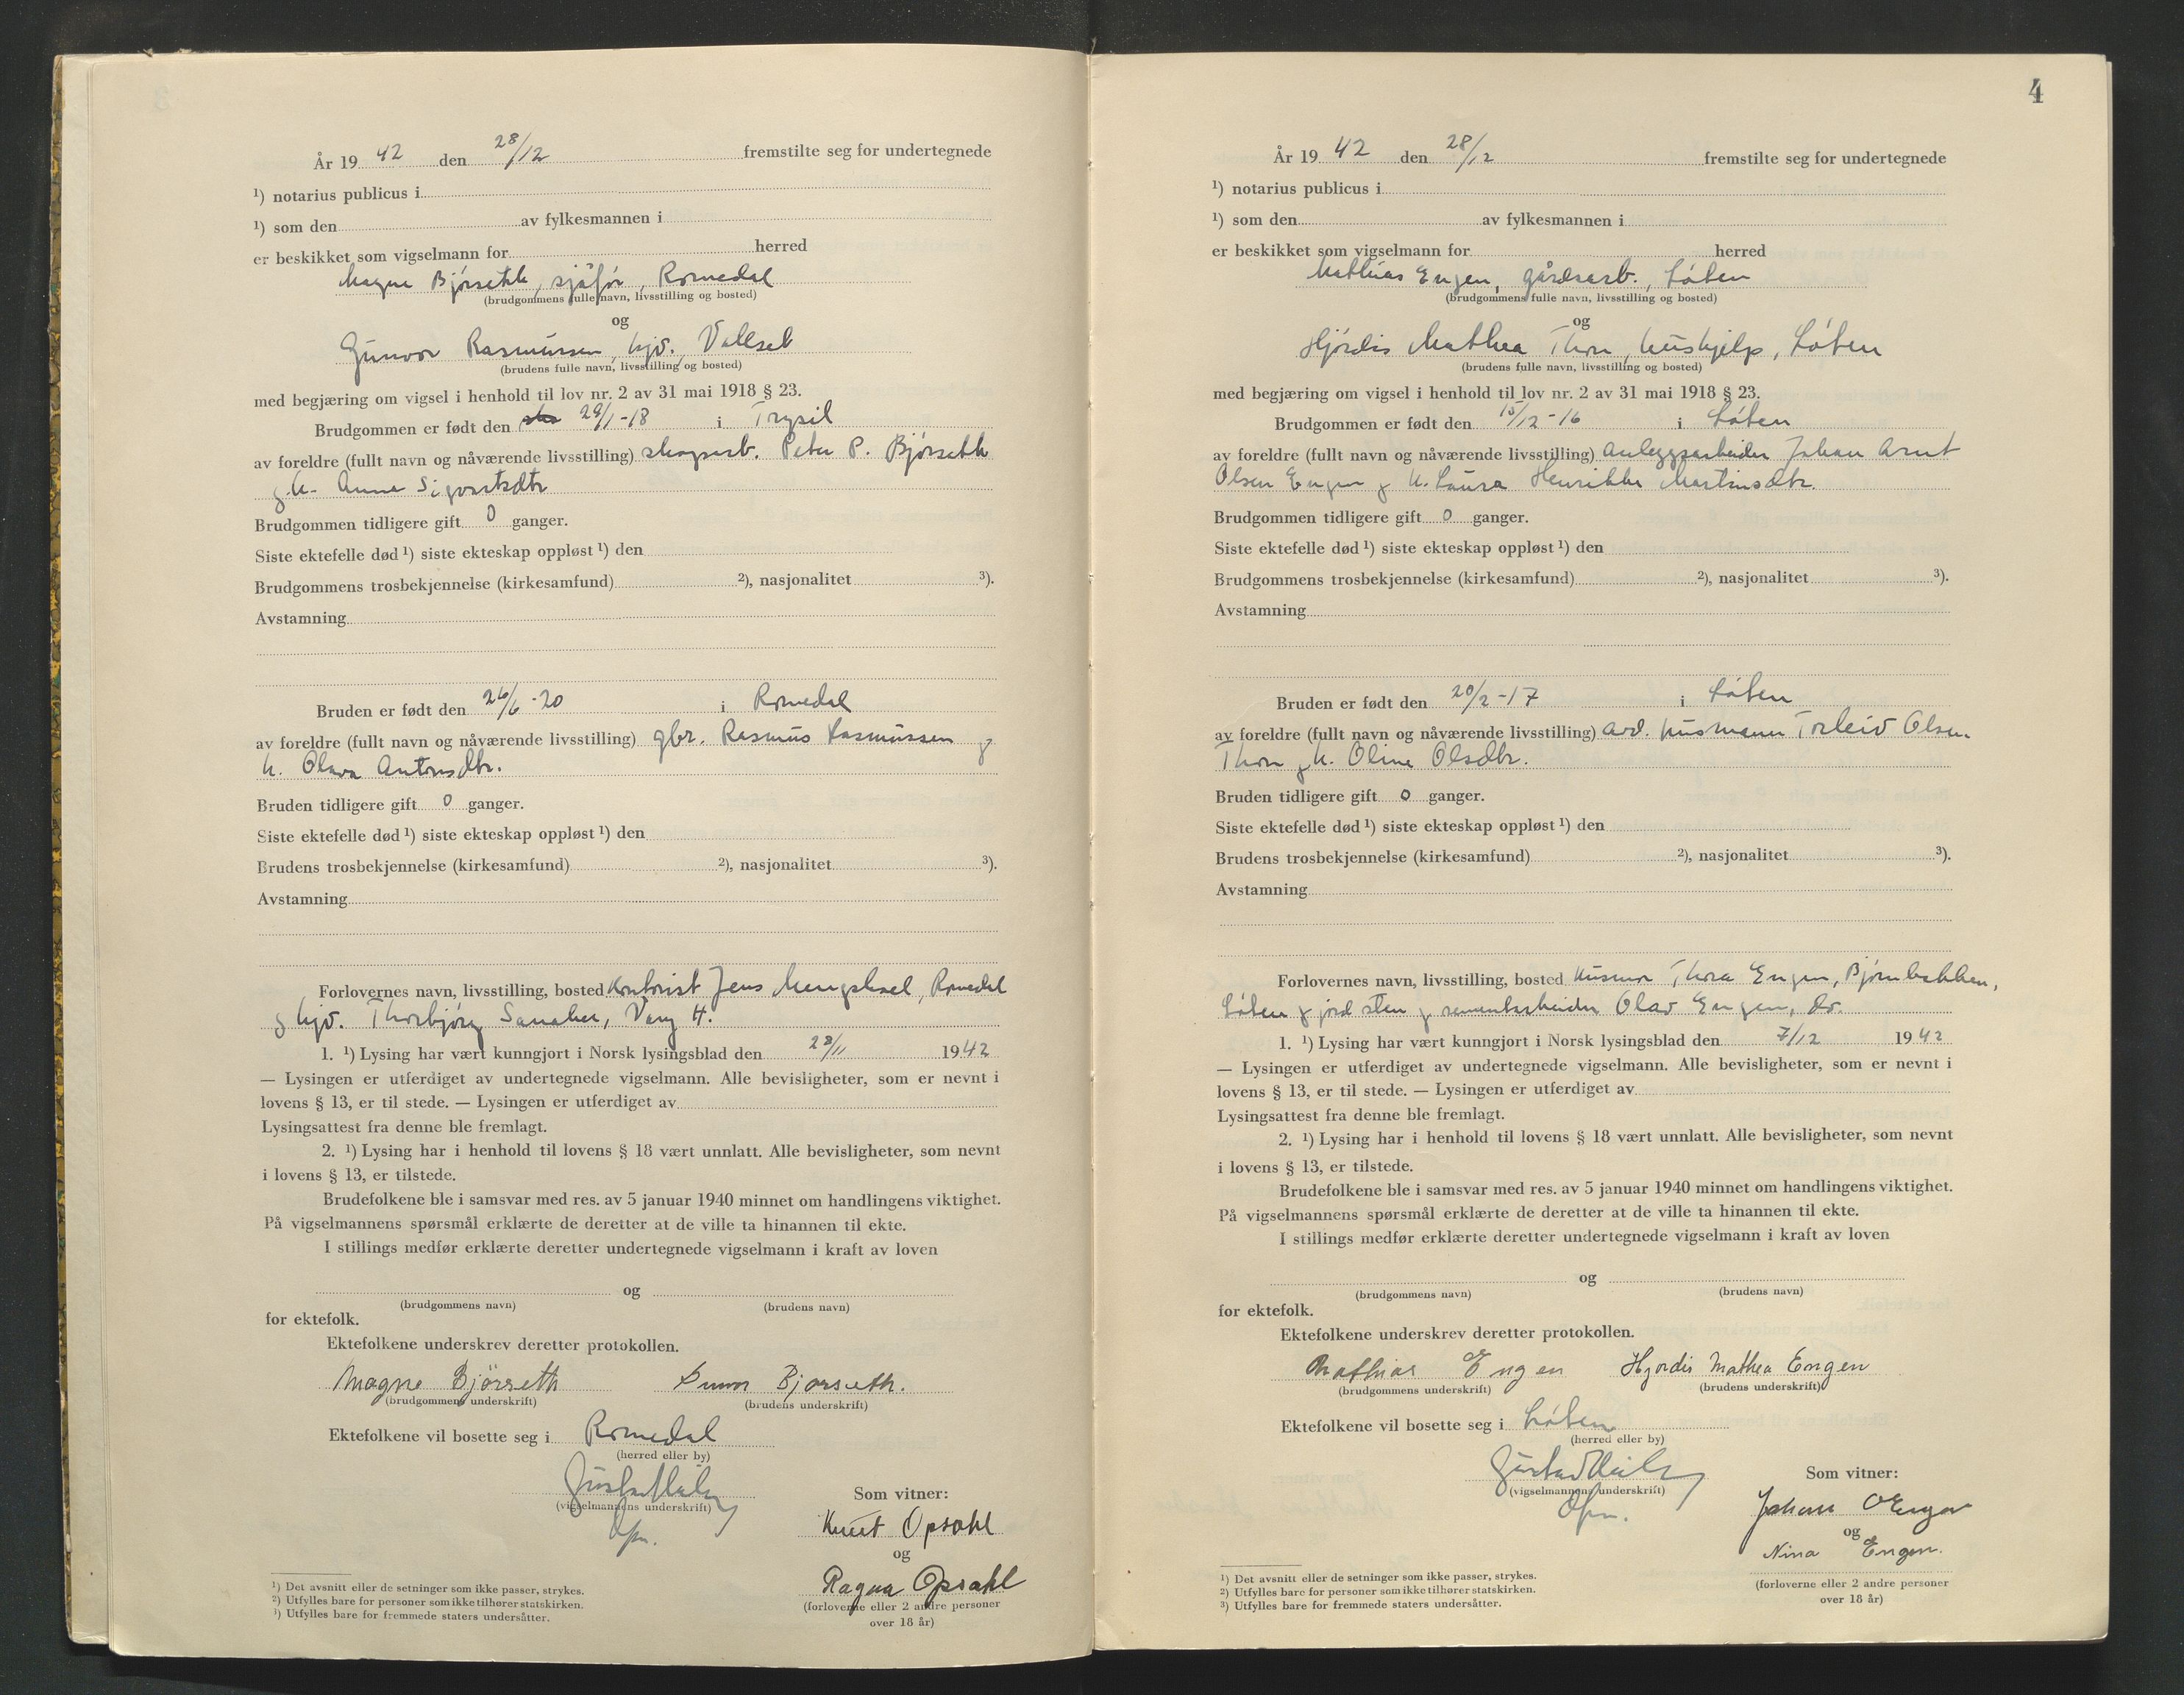 År 19 42 den 28/12 fremstilte seg for undertegnede
¹) notarius publicus i
¹) som den av fylkesmannen i
er beskikket som vigselmann for herred
Magne Bjørseth, sjåfør, Romedal
(brudgommens fulle navn, livsstilling og bosted)
og
Gunvor Rasmussen, hjv., Vallset
(brudens fulle navn, livsstilling og bosted)
med begjæring om vigsel i henhold til lov nr. 2 av 31 mai 1918 § 23.
Brudgommen er født den 29/1-18 i Trysil
av foreldre (fullt navn og nåværende livsstilling) skogsarb. Peter P. Bjørseth
og h. Anna Sigvartsdtr
Brudgommen tidligere gift 0 ganger.
Siste ektefelle død ¹) siste ekteskap oppløst ¹) den
Brudgommens trosbekjennelse (kirkesamfund) ²), nasjonalitet ³).
Avstamning
Bruden er født den 26/6-20 i Romedal
av foreldre (fullt navn og nåværende livsstilling) gbr. Rasmus Rasmussen og
h. Olava Antonsdtr.
Bruden tidligere gift 0 ganger.
Siste ektefelle død ¹) siste ekteskap oppløst ¹) den
Brudens trosbekjennelse (kirkesamfund) ²), nasjonalitet ³).
Avstamning
Forlovernes navn, livsstilling, bosted Kontorist Jens Mengshoel, Romedal
og hjv. Thorbjørg Vang H.
1. ¹) Lysing har vært kunngjort i Norsk lysingsblad den 28/11 1942
— Lysingen er utferdiget av undertegnede vigselmann. Alle bevisligheter, som er nevnt i
lovens § 13, er til stede. — Lysingen er utferdiget av
Lysingsattest fra denne ble fremlagt.
2. ¹) Lysing har i henhold til lovens § 18 vært unnlatt. Alle bevisligheter, som nevnt
i lovens § 13, er tilstede.
Brudefolkene ble i samsvar med res. av 5 januar 1940 minnet om handlingens viktighet.
På vigselmannens spørsmål erklærte de deretter at de ville ta hinannen til ekte.
I stillings medfør erklærte deretter undertegnede vigselmann i kraft av loven
og
(brudgommens navn) (brudens navn)
for ektefolk.
Ektefolkene underskrev deretter protokollen.
Magne Bjørseth Gunvor Bjørseth.
(brudgommens underskrift) (brudens underskrift)
Ektefolkene vil bosette seg i Romedal
(herred eller by)
(vigselmannens underskrift)
Som vitner:
Knut Opsahl
og
Ragna Opsahl
(forloverne eller 2 andre personer
over 18 år)
¹) Det avsnitt eller de setninger som ikke passer, strykes.
²) Utfylles bare for personer som ikke tilhører statskirken.
³) Utfylles bare for fremmede staters undersåtter.
4
År 19 42 den 28/12 fremstilte seg for undertegnede
¹) notarius publicus i
¹) som den av fylkesmannen i
er beskikket som vigselmann for herred
Mathias Engen, gårdsarb., Løten
(brudgommens fulle navn, livsstilling og bosted)
og
Hjørdis Mathea Thon, hushjelp, Løten
(brudens fulle navn, livsstilling og bosted)
med begjæring om vigsel i henhold til lov nr. 2 av 31 mai 1918 § 23.
Brudgommen er født den 15/12-16 i Løten
av foreldre (fullt navn og nåværende livsstilling) anleggsarbeider Johan Arnt
Olsen Engen og h. Laura Henrikke Martinsdtr.
Brudgommen tidligere gift 0 ganger.
Siste ektefelle død ¹) siste ekteskap oppløst ¹) den
Brudgommens trosbekjennelse (kirkesamfund) ²), nasjonalitet ³).
Avstamning
Bruden er født den 20/2-17 i Løten
av foreldre (fullt navn og nåværende livsstilling) avd. husmann Torleiv Olsen
Thon og h. Oline Olsdtr.
Bruden tidligere gift 0 ganger.
Siste ektefelle død ¹) siste ekteskap oppløst ¹) den
Brudens trosbekjennelse (kirkesamfund) ²), nasjonalitet ³).
Avstamning
Forlovernes navn, livsstilling, bosted Husmor Thora Engen, Bjørnbakken,
Løten og jord sten og sementarbeider Olav Engen, do.
1. ¹) Lysing har vært kunngjort i Norsk lysingsblad den 7/12 1942
— Lysingen er utferdiget av undertegnede vigselmann. Alle bevisligheter, som er nevnt i
lovens § 13, er til stede. — Lysingen er utferdiget av
Lysingsattest fra denne ble fremlagt.
2. ¹) Lysing har i henhold til lovens § 18 vært unnlatt. Alle bevisligheter, som nevnt
i lovens § 13, er tilstede.
Brudefolkene ble i samsvar med res. av 5 januar 1940 minnet om handlingens viktighet.
På vigselmannens spørsmål erklærte de deretter at de ville ta hinannen til ekte.
I stillings medfør erklærte deretter undertegnede vigselmann i kraft av loven
og
(brudgommens navn) (brudens navn)
for ektefolk.
Ektefolkene underskrev deretter protokollen.
Mathias Engen Hjørdis Mathea Engen
(brudgommens underskrift) (brudens underskrift)
Ektefolkene vil bosette seg i Løten
(herred eller by)
(vigselmannens underskrift)
Som vitner:
Johan Engen
og
Nina Engen.
(forloverne eller 2 andre personer
over 18 år)
¹) Det avsnitt eller de setninger som ikke passer, strykes.
²) Utfylles bare for personer som ikke tilhører statskirken.
³) Utfylles bare for fremmede staters undersåtter.